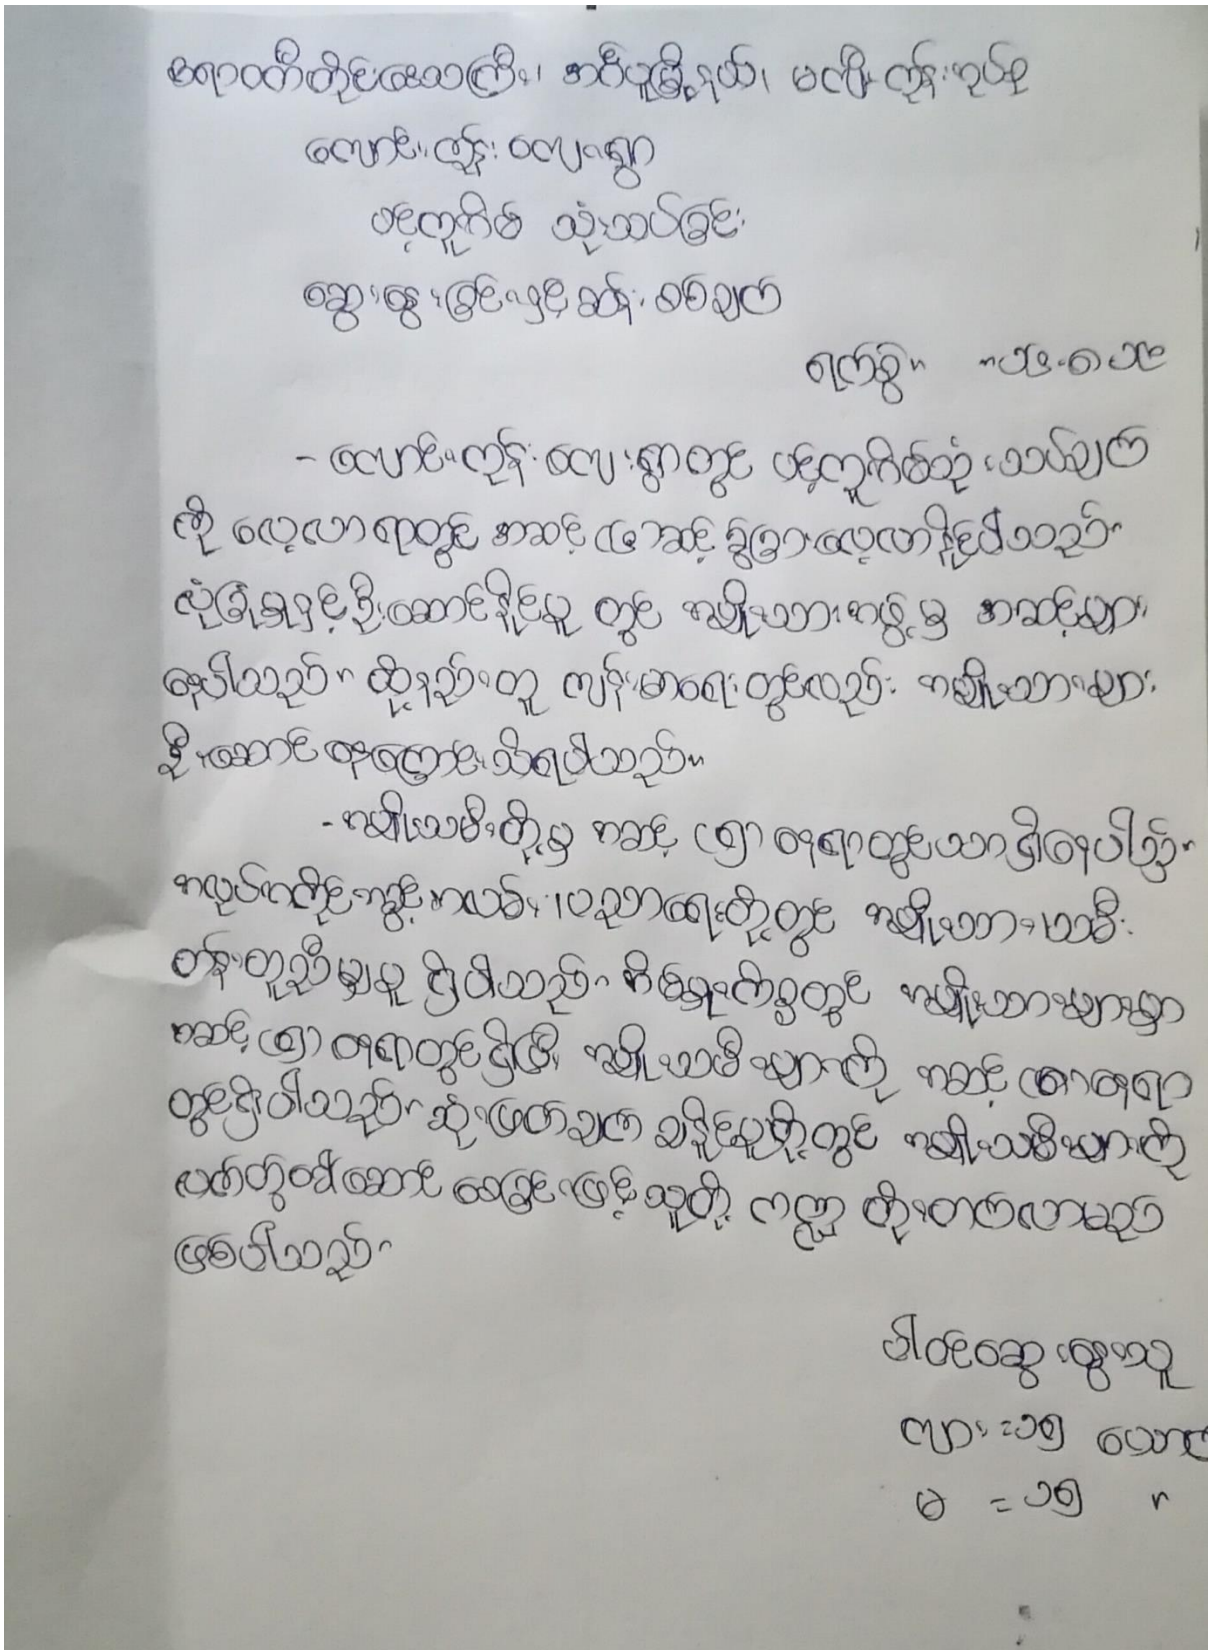 ဧရာဝတီတိုင်းဒေသကြီး၊ အင်္ဂပူမြို့နယ်၊ မကျီးကုန်းအုပ်စု
လောင်းကုန်းလေးရွာ
ပင့်ကူအိမ် သုံးသပ်ခြင်း
ဆွေးနွေးခြင်းနှင့်ဆန်းစစ်ချက်
ရက်စွဲ။
- လောင်းကုန်းလေးရွာတွင် ပင့်ကူအိမ်သုံးသပ်ချက်
ကို လေ့လာရာတွင် အဆင့် (၅)ဆင့် ခွဲခြားလေ့လာနိုင်ပါသည်။
လုံခြုံမှုနှင့်ဦးဆောင်နိုင်မှု တွင် အမျိုးသားအဖွဲ့မှ အဆင့်များ
နေပါသည်။ ထို့နည်းတူ ကျန်းမာရေးတွင်လည်း အမျိုးသားများ
ဦးဆောင်နေကြောင်းသိရပါသည်။
- အမျိုးသမီးတို့မှ အဆင့် (၅) နေရာတွင်သာရှိနေပါသည်။
အလုပ်အကိုင်အခွင့်အလမ်း၊ ပညာရေးတို့တွင် အမျိုးသား၊သမီး
တန်းတူညီမျှမှု ရှိပါသည်။ အိမ်မှုကိစ္စတွင် အမျိုးသားများမှာ
အဆင့် (၅) နေရာတွင်ရှိပြီး အမျိုးသမီးများကို အဆင့် နေရာ
တွင်ရှိပါသည်။ ဆုံးဖြတ်ချက် ချနိုင်မှုတို့တွင် အမျိုးသမီးများကို
လက်တွဲခေါ်ဆောင်စေခြင်းဖြင့် သူတို့ ကဏ္ဍ တိုးတက်လာမည်
ဖြစ်ပါသည်။
ပါဝင်ဆွေးနွေးသူ
ကျား = ၁၅ ယောက်
မ = ၁၅ "